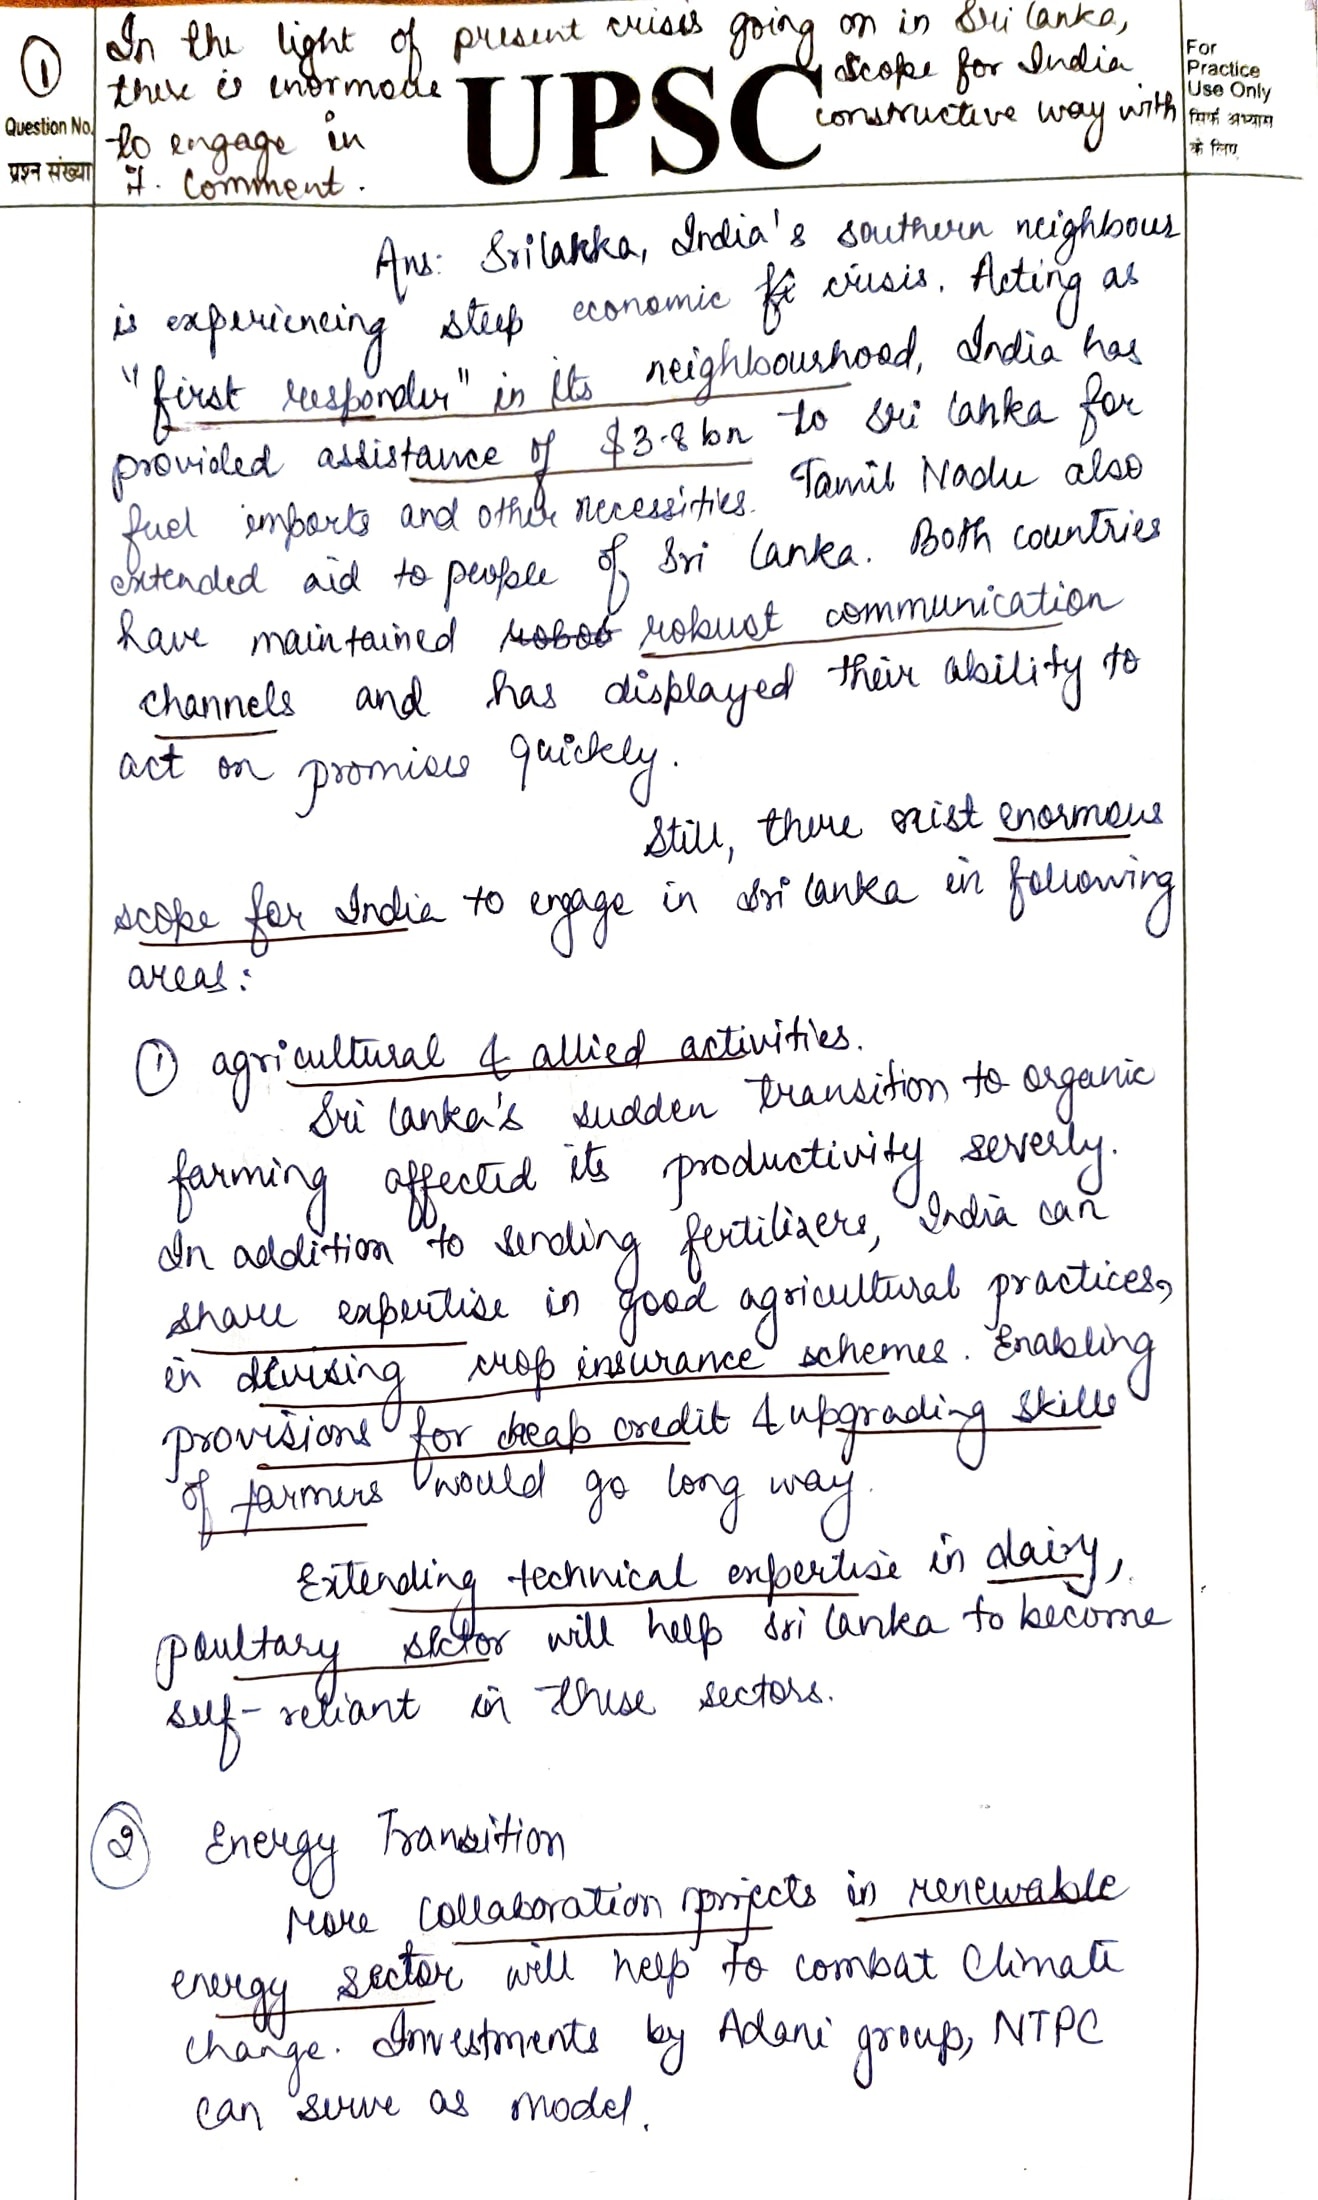 In the light of present crisis going on in Sri Lanka,
there is enormous scope for India
to engage in constructive way with
it. Comment.
UPSC
1
Question No.
प्रश्न संख्या
For
Practice
Use Only
सिर्फ अभ्यास
के लिए
Ans: Srilanka, India's southern neighbour
is experiencing steep economic crisis. Acting as
"first responder" in its neighbourhood, India has
provided assistance of $3.8 bn to Sri Lanka for
fuel imports and other necessities. Tamil Nadu also
extended aid to people of Sri Lanka. Both countries
have maintained robust communication
channels and has displayed their ability to
act on promises quickly.
Still, there exist enormous
scope for India to engage in Sri Lanka in following
areas:
① agricultural & allied activities.
Sri Lanka's sudden transition to organic
farming affected its productivity severly.
In addition to sending fertilizers, India can
share expertise in good agricultural practices,
in devising crop insurance schemes. Enabling
provisions for cheap credit & upgrading skills
of farmers would go long way.
Extending technical expertise in dairy,
poultary sector will help Sri Lanka to become
self-reliant in these sectors.
② Energy Transition
More collaboration projects in renewable
energy sector will help to combat Climate
change. Investments by Adani group, NTPC
can serve as model.